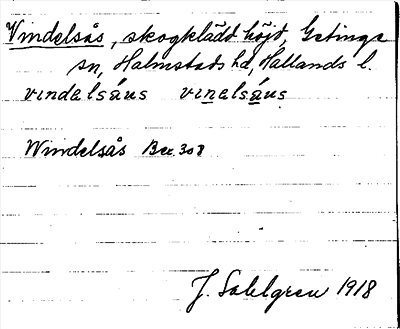 Vindelsås, skogklädd höjd, Getinge
sn, Halmstads hd, Hallands l.
vindalsáus vinalsáus
Windelsås Bee 308
J. Sahlgren 1918